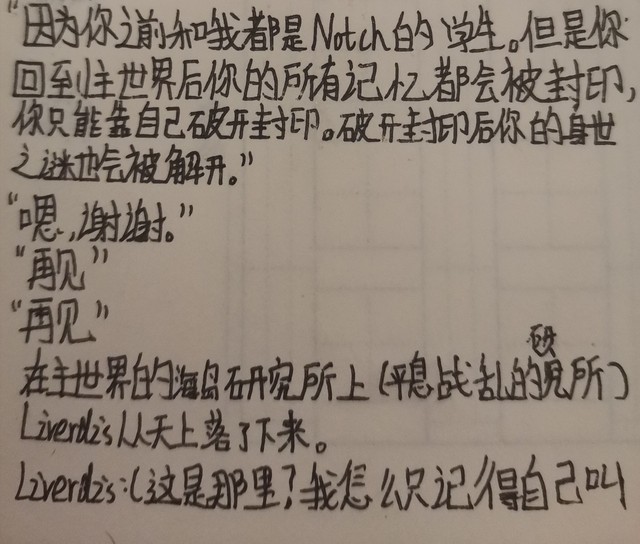 “因为你之前和我都是Notch的学生。但是你
回到主世界后你的所有记忆都会被封印,
你只能靠自己破开封印。破开封印后你的身世
之谜也会被解开。”
“嗯,谢谢。”
“再见”
“再见”
研
在主世界的海岛研究所上(平息战乱的究所)
Liverdis从天上落了下来。
Liverdis:(这是那里?我怎么只记得自己叫